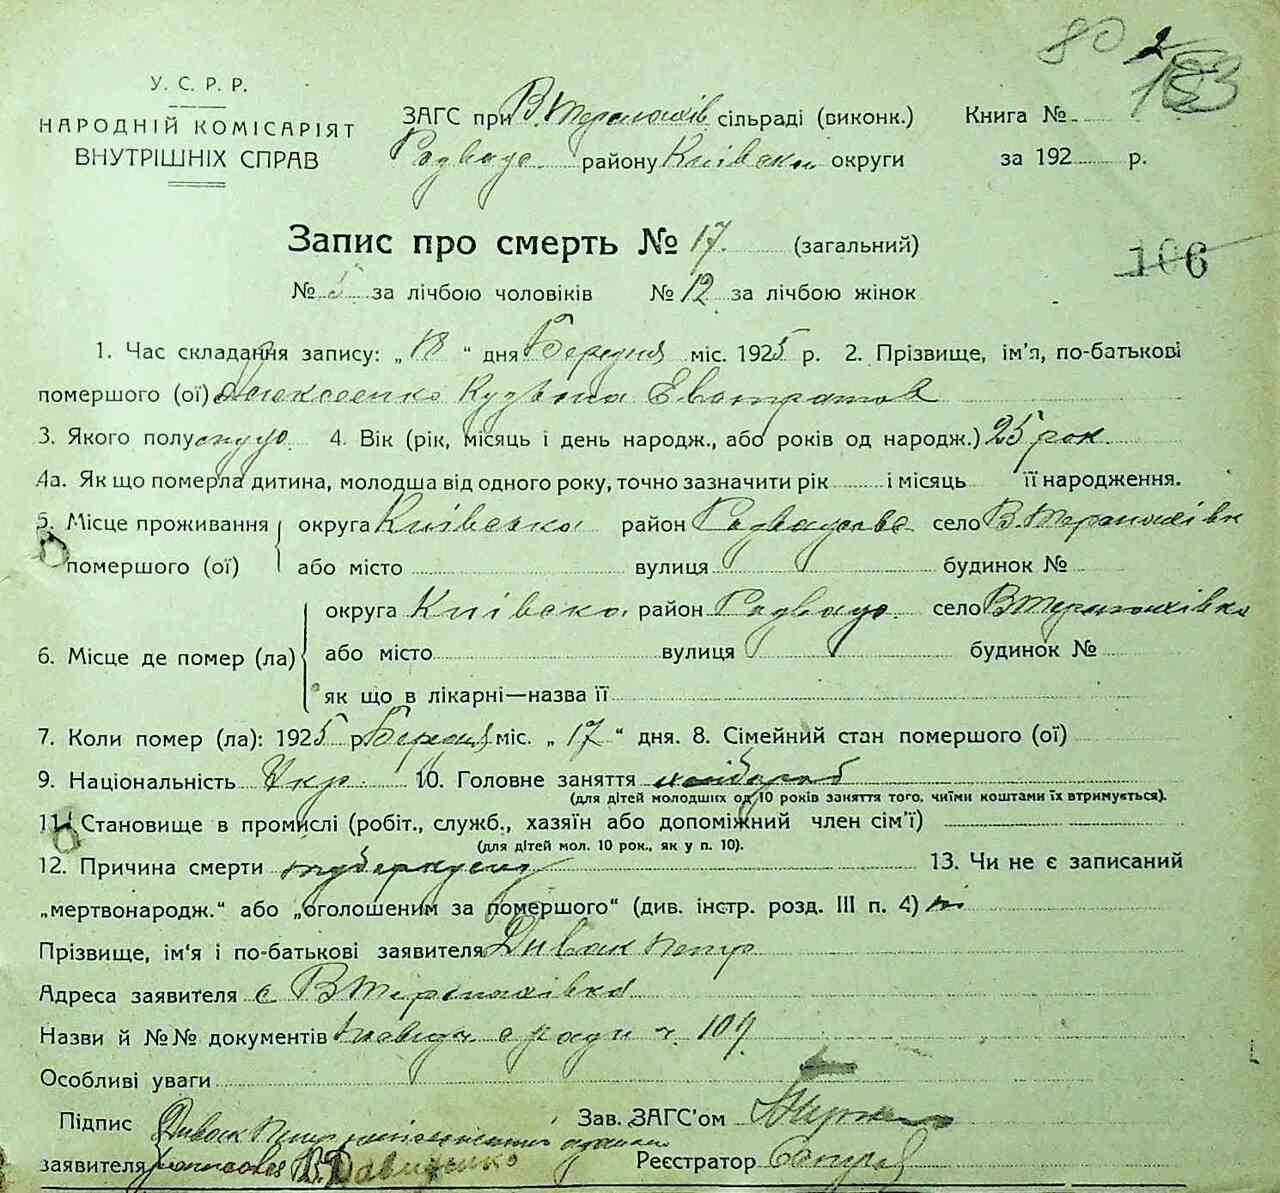 80 2
183
У. С. Р. Р.
НАРОДНІЙ КОМІСАРІЯТ
ВНУТРІШНІХ СПРАВ
ЗАГС при В. сільраді (виконк.) Книга №
району Київськ округи за 192 р.
Запис про смерть № 17. (загальний)
106
№ 5 за лічбою чоловіків № 12 за лічбою жінок
1. Час складання запису: „18“ дня Березня міс. 1925 р. 2. Прізвище, ім’я, по-батькові
помершого (ої) Кузьма Евстратов
3. Якого полу 4. Вік (рік, місяць і день народж., або років од народж.) 25 рок.
4а. Як що померла дитина, молодша від одного року, точно зазначити рік і місяць її народження.
5. Місце проживання округа Київська район село В.
помершого (ої) або місто вулиця будинок №
округа Київска район село В
6. Місце де помер (ла) або місто вулиця будинок №
як що в лікарні—назва її
7. Коли помер (ла): 1925 р. Березня міс. „17“ дня. 8. Сімейний стан помершого (ої)
9. Національність Укр. 10. Головне заняття хлібороб
(для дітей молодших од 10 років заняття того, чиїми коштами їх втримується).
11. Становище в промислі (робіт., служб., хазяїн або допоміжний член сім’ї)
(для дітей мол. 10 рок., як у п. 10).
12. Причина смерти туберкульоз 13. Чи не є записаний
„мертвонародж.“ або „оголошеним за помершого“ (див. інстр. розд. III п. 4) ні
Прізвище, ім’я і по-батькові заявителя Дивак Петр
Адреса заявителя с В
Назви й №№ документів с ради ч. 109
Особливі уваги
Підпис Дивак Петр Зав. ЗАГС’ом
заявителя В. Давиденко Реєстратор